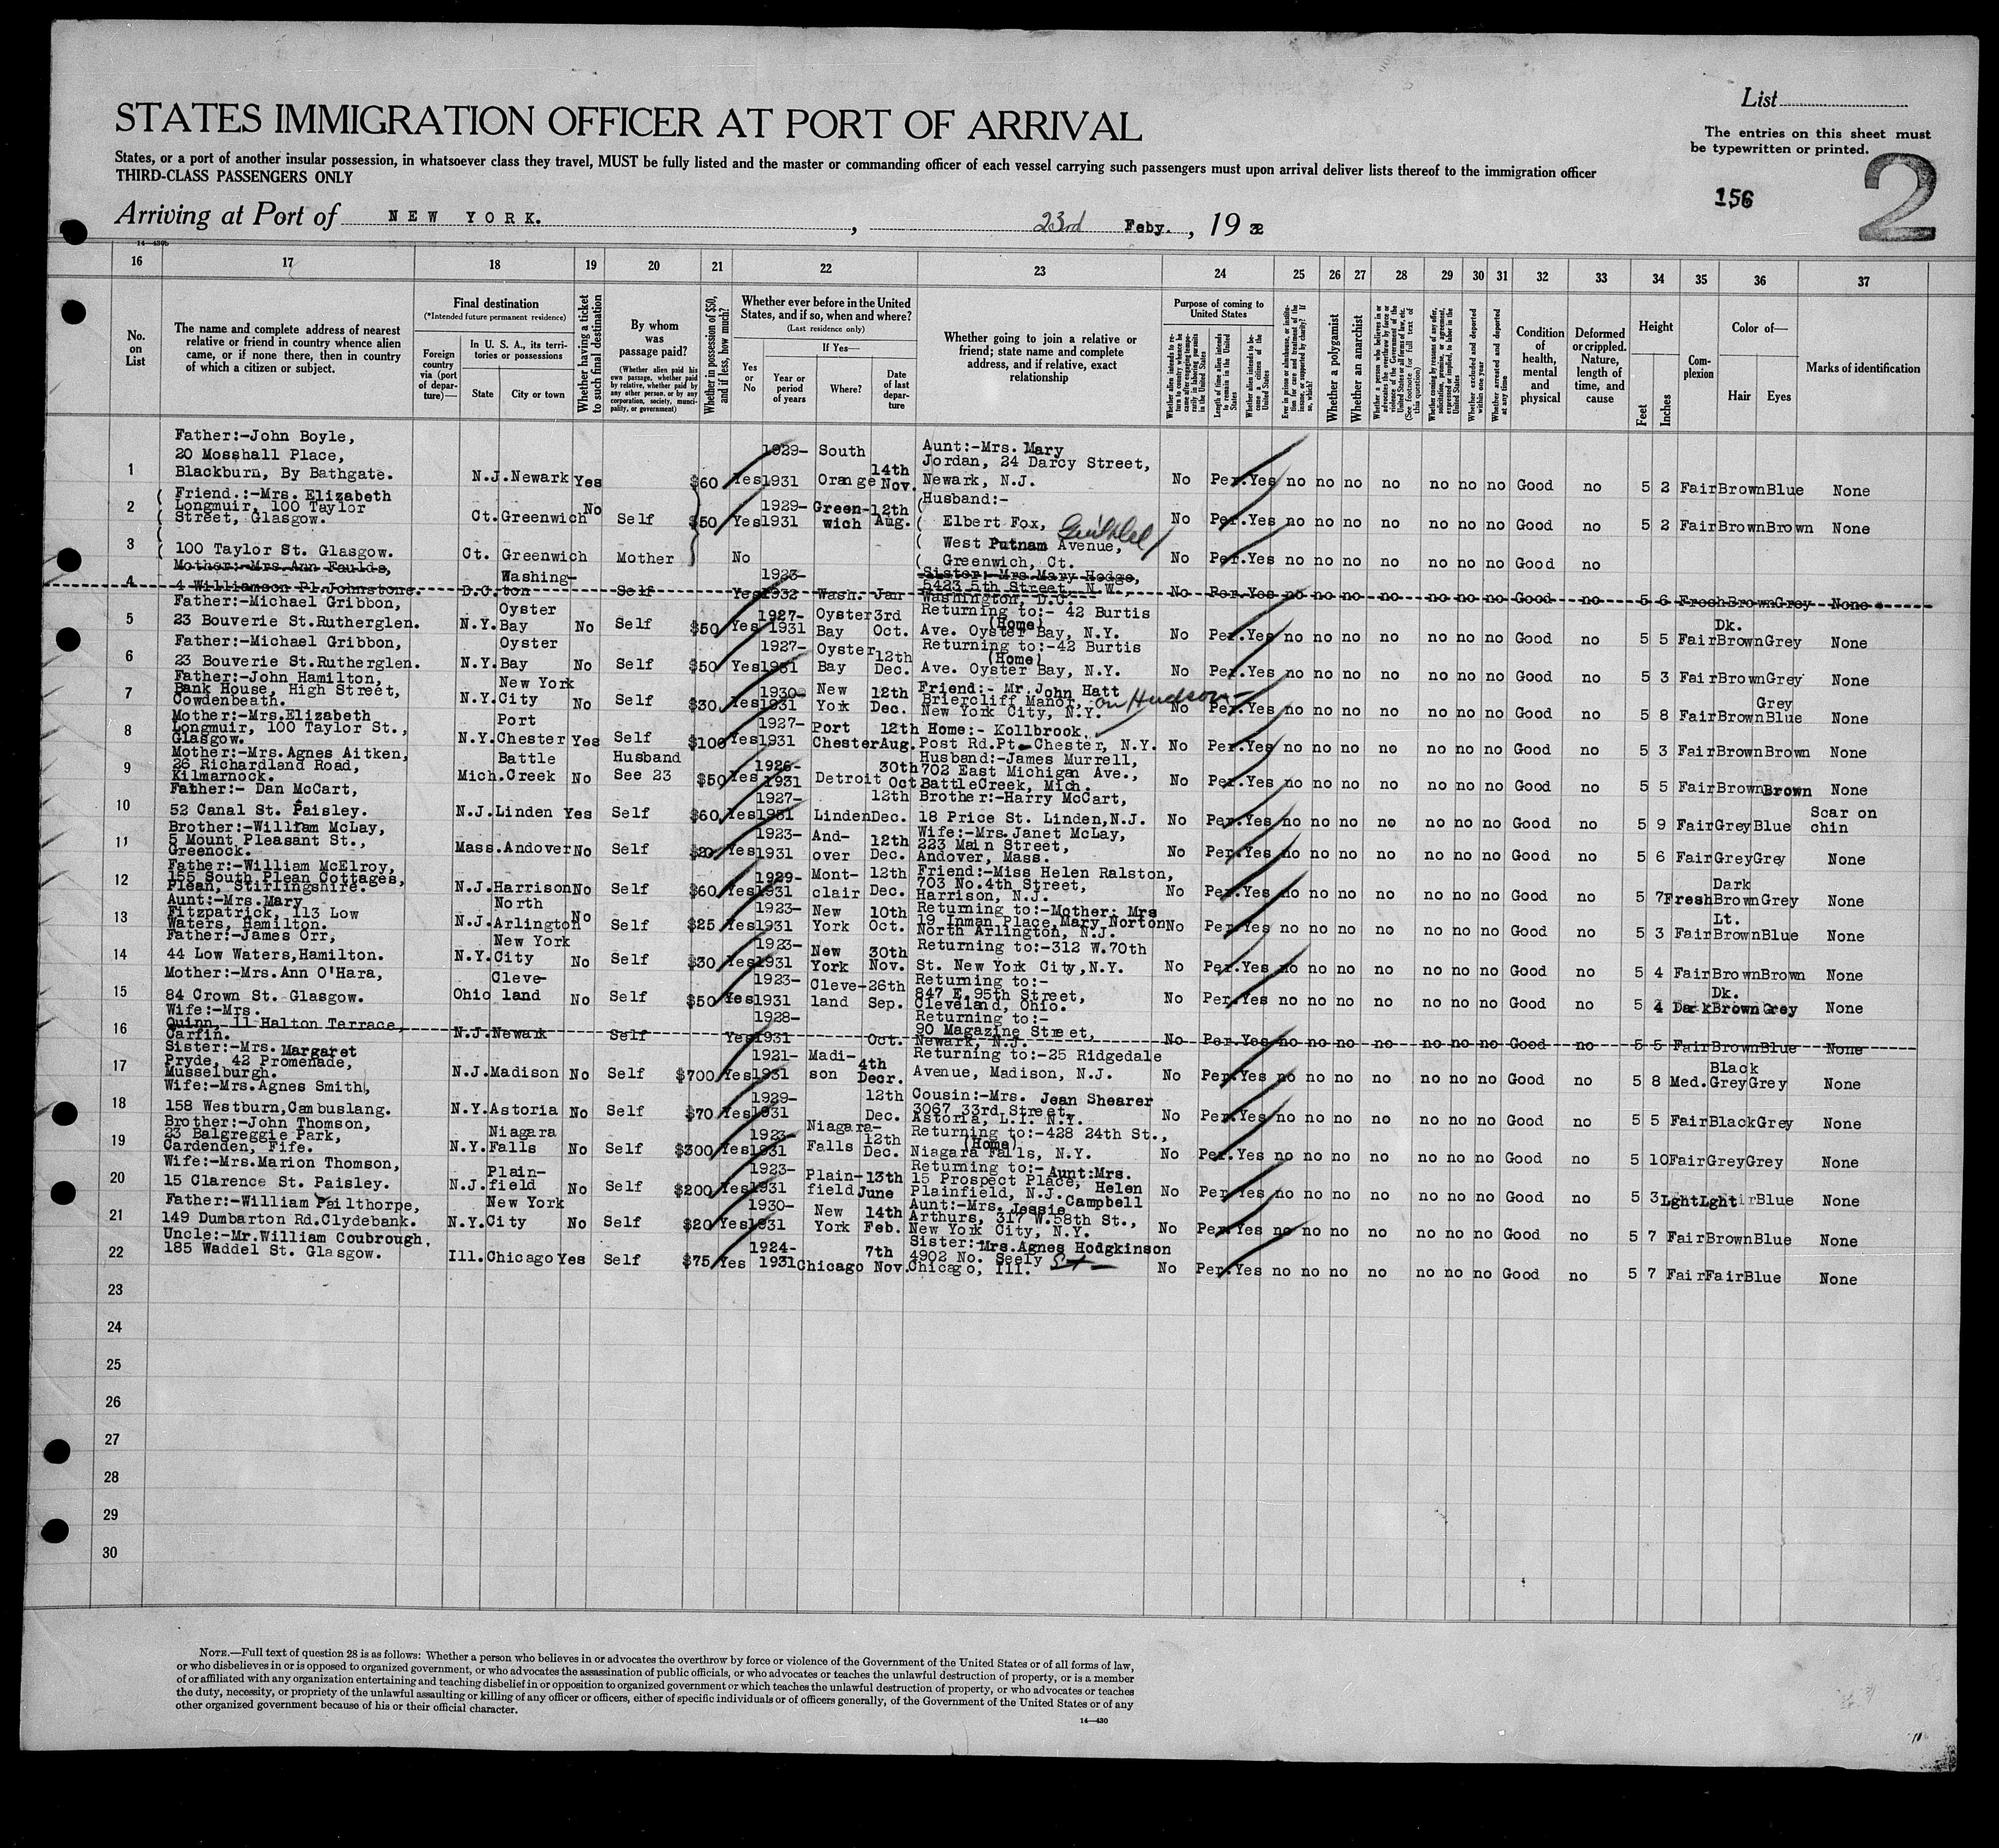 List
STATES IMMIGRATION OFFICER AT PORT OF ARRIVAL
The entries on this sheet must
be typewritten or printed.
States, or a port of another insular possession, in whatsoever class they travel, MUST be fully listed and the master or commanding officer of each vessel carrying such passengers must upon arrival deliver lists thereof to the immigration officer
THIRD-CLASS PASSENGERS ONLY
156
2
Arriving at Port of NEW YORK. , 23rd Feby. , 19 32
14—430b
16 17 18 19 20 21 22 23 24 25 26 27 28 29 30 31 32 33 34 35 36 37
No. on List
The name and complete address of nearest relative or friend in country whence alien came, or if none there, then in country of which a citizen or subject.
Final destination
(*Intended future permanent residence)
Foreign country via (port of departure)—
In U. S. A., its territories or possessions
State
City or town
Whether having a ticket to such final destination
By whom was passage paid?
(Whether alien paid his own passage, whether paid by relative, whether paid by any other person, or by any corporation, society, municipality, or government)
Whether in possession of $50, and if less, how much?
Whether ever before in the United States, and if so, when and where?
(Last residence only)
Yes or No
If Yes—
Year or period of years
Where?
Date of last departure
Whether going to join a relative or friend; state name and complete address, and if relative, exact relationship
Purpose of coming to United States
Whether alien intends to return to country whence he came after engaging temporarily in laboring pursuits in the United States
Length of time alien intends to remain in the United States
Whether alien intends to become a citizen of the United States
Ever in prison or almshouse, or institution for care and treatment of the insane, or supported by charity? If so, which?
Whether a polygamist
Whether an anarchist
Whether a person who believes in or advocates the overthrow by force or violence of the Government of the United States or all forms of law, etc. (See footnote for full text of this question)
Whether coming by reason of any offer, solicitation, promise, or agreement, expressed or implied, to labor in the United States
Whether excluded and deported within one year
Whether arrested and deported at any time
Condition of health, mental and physical
Deformed or crippled. Nature, length of time, and cause
Height
Feet
Inches
Complexion
Color of—
Hair
Eyes
Marks of identification
1 Father:-John Boyle, 20 Mosshall Place, Blackburn, By Bathgate. N.J. Newark Yes $60 Yes 1929-1931 South Orange 14th Nov. Aunt:-Mrs. Mary Jordan, 24 Darcy Street, Newark, N.J. No Per. Yes no no no no no no no Good no 5 2 Fair Brown Blue None
2 Friend.:-Mrs. Elizabeth Longmuir, 100 Taylor Street, Glasgow. Ct. Greenwich No Self $50 Yes 1929-1931 Greenwich 12th Aug. Husband:- Elbert Fox, No Per. Yes no no no no no no no Good no 5 2 Fair Brown Brown None
3 100 Taylor St. Glasgow. Ct. Greenwich Mother No West Putnam Avenue, Greenwich, Ct. No Per. Yes no no no no no no no Good no
4 Mother:-Mrs. Ann Faulds, 4 Williamson Pl. Johnstone. D.C. Washington Self Yes 1923-1932 Wash. Jan Sister:-Mrs Mary Hodge, 5423 5th Street, N.W. Washington, D.C. No Per. Yes no no no no no no no Good no 5 6 Fresh Brown Grey None
5 Father:-Michael Gribbon, 23 Bouverie St. Rutherglen. N.Y. Oyster Bay No Self $50 Yes 1927-1931 Oyster Bay 3rd Oct. Returning to:- 42 Burtis (Home) Ave. Oyster Bay, N.Y. No Per. Yes no no no no no no no Good no 5 5 Fair Dk. Brown Grey None
6 Father:-Michael Gribbon, 23 Bouverie St. Rutherglen. N.Y. Oyster Bay No Self $50 Yes 1927-1931 Oyster Bay 12th Dec. Returning to:-42 Burtis (Home) Ave. Oyster Bay, N.Y. No Per. Yes no no no no no no no Good no 5 3 Fair Brown Grey None
7 Father:-John Hamilton, Bank House, High Street, Cowdenbeath. N.Y. New York City No Self $30 Yes 1930-1931 New York 12th Dec. Friend:- Mr. John Hatt Briercliff Manor, on Hudson New York City, N.Y. No Per. Yes no no no no no no no Good no 5 8 Fair Brown Grey Blue None
8 Mother:-Mrs. Elizabeth Longmuir, 100 Taylor St., Glasgow. N.Y. Port Chester Yes Self $100 Yes 1927-1931 Port Chester 12th Aug. Home:- Kollbrook, Post Rd. Pt. Chester, N.Y. No Per. Yes no no no no no no no Good no 5 3 Fair Brown Brown None
9 Mother:-Mrs. Agnes Aitken, 26 Richardland Road, Kilmarnock. Mich. Battle Creek No Husband See 23 $50 Yes 1926-1931 Detroit 30th Oct Husband:-James Murrell, 702 East Michigan Ave., Battle Creek, Mich. No Per. Yes no no no no no no no Good no 5 5 Fair Brown Brown None
10 Father:- Dan McCart, 52 Canal St. Paisley. N.J. Linden Yes Self $60 Yes 1927-1931 Linden 12th Dec. Brother:-Harry McCart, 18 Price St. Linden, N.J. No Per. Yes no no no no no no no Good no 5 9 Fair Grey Blue Scar on chin
11 Brother:-William McLay, 5 Mount Pleasant St., Greenock. Mass. Andover No Self $20 Yes 1923-1931 Andover 12th Dec. Wife:-Mrs. Janet McLay, 223 Main Street, Andover, Mass. No Per. Yes no no no no no no no Good no 5 6 Fair Grey Grey None
12 Father:-William McElroy, 155 South Plean Cottages, Plean, Stirlingshire. N.J. Harrison No Self $60 Yes 1929-1931 Montclair 12th Dec. Friend:-Miss Helen Ralston, 703 No. 4th Street, Harrison, N.J. No Per. Yes no no no no no no no Good no 5 7 Fresh Dark Brown Grey None
13 Aunt:-Mrs. Mary Fitzpatrick, 113 Low Waters, Hamilton. N.J. North Arlington No Self $25 Yes 1923-1931 New York 10th Oct. Returning to:-Mother: Mrs Mary Norton 19 Inman Place, North Arlington, N.J. No Per. Yes no no no no no no no Good no 5 3 Fair Lt. Brown Blue None
14 Father:-James Orr, 44 Low Waters, Hamilton. N.Y. New York City No Self $30 Yes 1923-1931 New York 30th Nov. Returning to:-312 W. 70th St. New York City, N.Y. No Per. Yes no no no no no no no Good no 5 4 Fair Brown Brown None
15 Mother:-Mrs. Ann O'Hara, 84 Crown St. Glasgow. Ohio Cleveland No Self $50 Yes 1923-1931 Cleveland 26th Sep. Returning to:- 847 E. 95th Street, Cleveland, Ohio. No Per. Yes no no no no no no no Good no 5 4 Dark Dk. Brown Grey None
16 Wife:-Mrs. Quinn, 11 Halton Terrace, Carfin. N.J. Newark Self Yes 1928-1931 Oct. Returning to:- 90 Magazine Street, Newark, N.J. No Per. Yes no no no no no no no Good no 5 5 Fair Brown Blue None
17 Sister:-Mrs. Margaret Pryde, 42 Promenade, Musselburgh. N.J. Madison No Self $700 Yes 1921-1931 Madison 4th Decr. Returning to:-25 Ridgedale Avenue, Madison, N.J. No Per. Yes no no no no no no no Good no 5 8 Med. Black Grey Grey None
18 Wife:-Mrs. Agnes Smith, 158 Westburn, Cambuslang. N.Y. Astoria No Self $70 Yes 1929-1931 12th Dec. Cousin:-Mrs. Jean Shearer 3067 33rd Street, Astoria, L.I. N.Y. No Per. Yes no no no no no no no Good no 5 5 Fair Black Grey None
19 Brother:-John Thomson, 23 Balgreggie Park, Cardenden, Fife. N.Y. Niagara Falls No Self $300 Yes 1923-1931 Niagara-Falls 12th Dec. Returning to:-428 24th St., (Home) Niagara Falls, N.Y. No Per. Yes no no no no no no no Good no 5 10 Fair Grey Grey None
20 Wife:-Mrs. Marion Thomson, 15 Clarence St. Paisley. N.J. Plainfield No Self $200 Yes 1923-1931 Plainfield 13th June Returning to:-Aunt: Mrs. Helen Campbell 15 Prospect Place, Plainfield, N.J. No Per. Yes no no no no no no no Good no 5 3 Lght Lght Blue None
21 Father:-William Pailthorpe, 149 Dumbarton Rd. Clydebank. N.Y. New York City No Self $20 Yes 1930-1931 New York 14th Feb. Aunt:-Mrs. Jessie Arthurs, 317 W. 58th St., New York City, N.Y. No Per. Yes no no no no no no no Good no 5 7 Fair Brown Blue None
22 Uncle:-Mr. William Coubrough, 185 Waddel St. Glasgow. Ill. Chicago Yes Self $75 Yes 1924-1931 Chicago 7th Nov. Sister:-Mrs. Agnes Hodgkinson 4902 No. Seely St Chicago, Ill. No Per. Yes no no no no no no no Good no 5 7 Fair Fair Blue None
23
24
25
26
27
28
29
30
NOTE.—Full text of question 28 is as follows: Whether a person who believes in or advocates the overthrow by force or violence of the Government of the United States or of all forms of law,
or who disbelieves in or is opposed to organized government, or who advocates the assassination of public officials, or who advocates or teaches the unlawful destruction of property, or is a member
of or affiliated with any organization entertaining and teaching disbelief in or opposition to organized government or which teaches the unlawful destruction of property, or who advocates or teaches
the duty, necessity, or propriety of the unlawful assaulting or killing of any officer or officers, either of specific individuals or of officers generally, of the Government of the United States or of any
other organized government because of his or their official character.
14—430